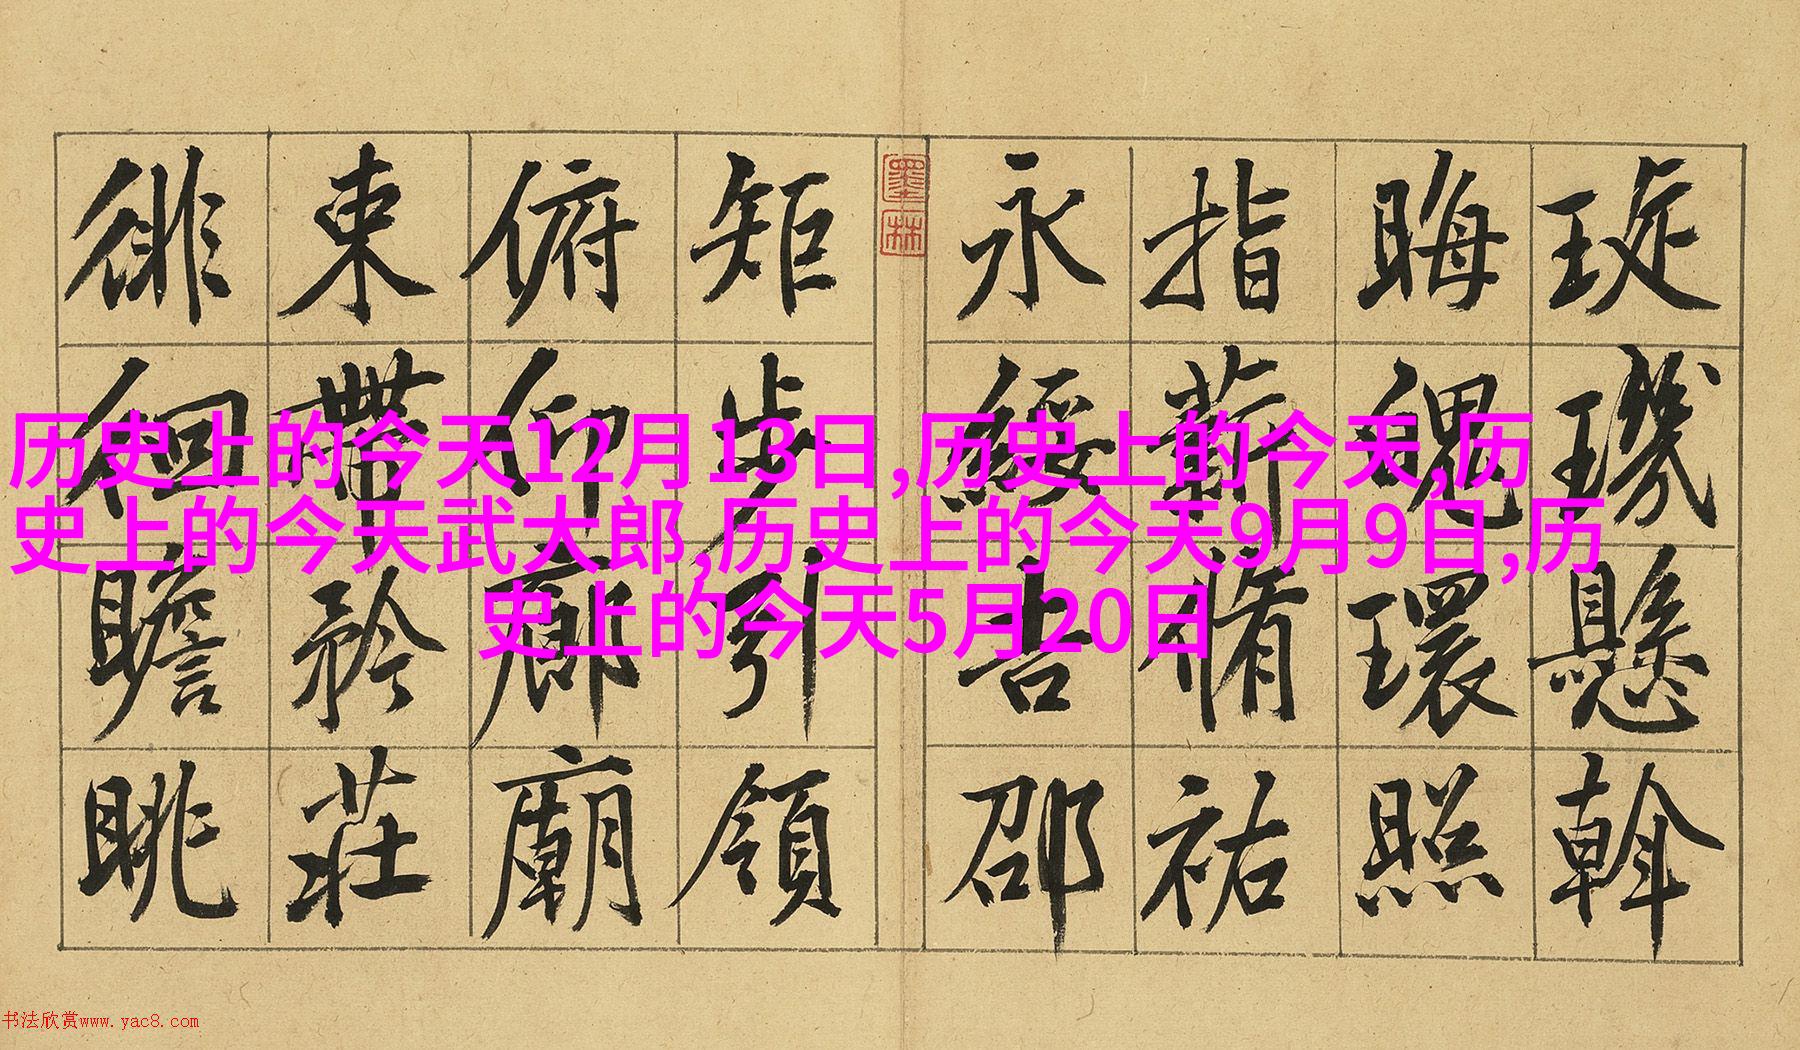 琁璣懸斡
晦魄環照
指薪脩祐
永綏吉邵
墨林
矩步引領
俯仰廊廟
束帶矜莊
徘徊瞻眺
历史上的今天12月13日,历史上的今天,历
史上的今天武大郎,历史上的今天9月9日,历
史上的今天5月20日
书法欣赏www.yac8.com